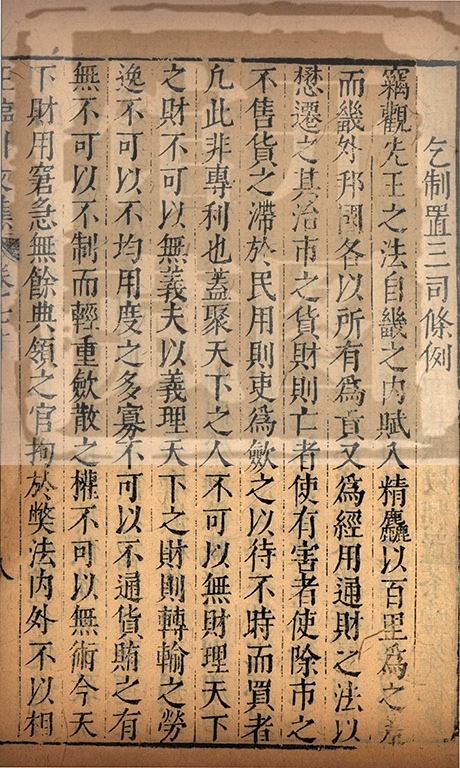 乞制置三司條例
竊觀先王之法自畿之内賦入精麤以百里爲之差
而畿外邦國各以所有爲貢又爲經用通財之法以
懋遷之其治市之貨財則亡者使有害者使除市之
不售貨之滯於民用則吏爲斂之以待不時而買者
凡此非專利也蓋聚天下之人不可以無財理天下
之財不可以無義夫以義理天下之財則轉輸之勞
逸不可以不均用度之多寡不可以不通貨賄之有
無不可以不制而輕重斂散之權不可以無術今天
下財用窘急無餘典領之官拘於弊法内外不以相
王臨川文集 卷七十 八